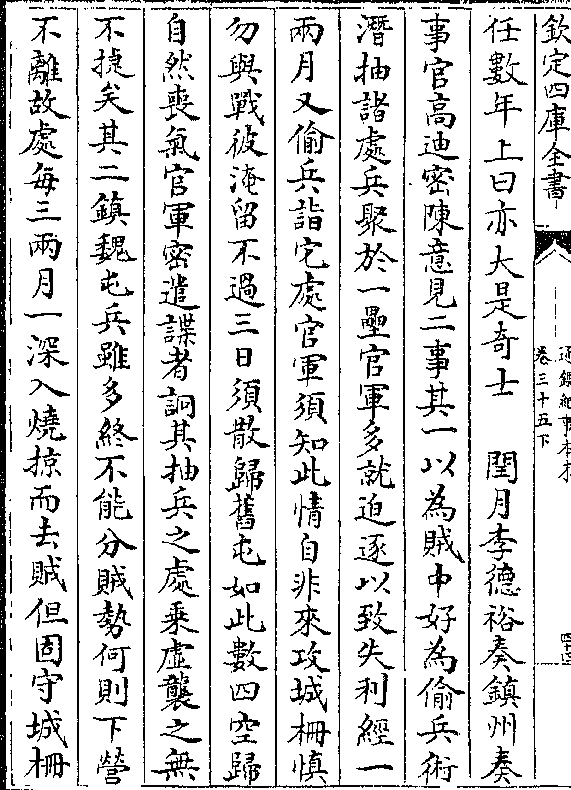 欽定四庫全書
通鑑紀事本末
卷三十五下
四十四
任數年上曰亦大是奇士　閏月李德裕奏鎮州奏
事官高迪密陳意見二事其一以為賊中好為偷兵術
潛抽諸處兵聚於一壘官軍多就迫逐以致失利經一
兩月又偷兵詣它處官軍須知此情自非來攻城柵慎
勿與戰彼淹留不過三日須散歸舊屯如此數四空歸
自然喪氣官軍密遣諜者詗其抽兵之處乘虛襲之無
不㨗矣其二鎮魏屯兵雖多終不能分賊勢何則下營
不離故處每三兩月一深入燒掠而去賊但固守城柵